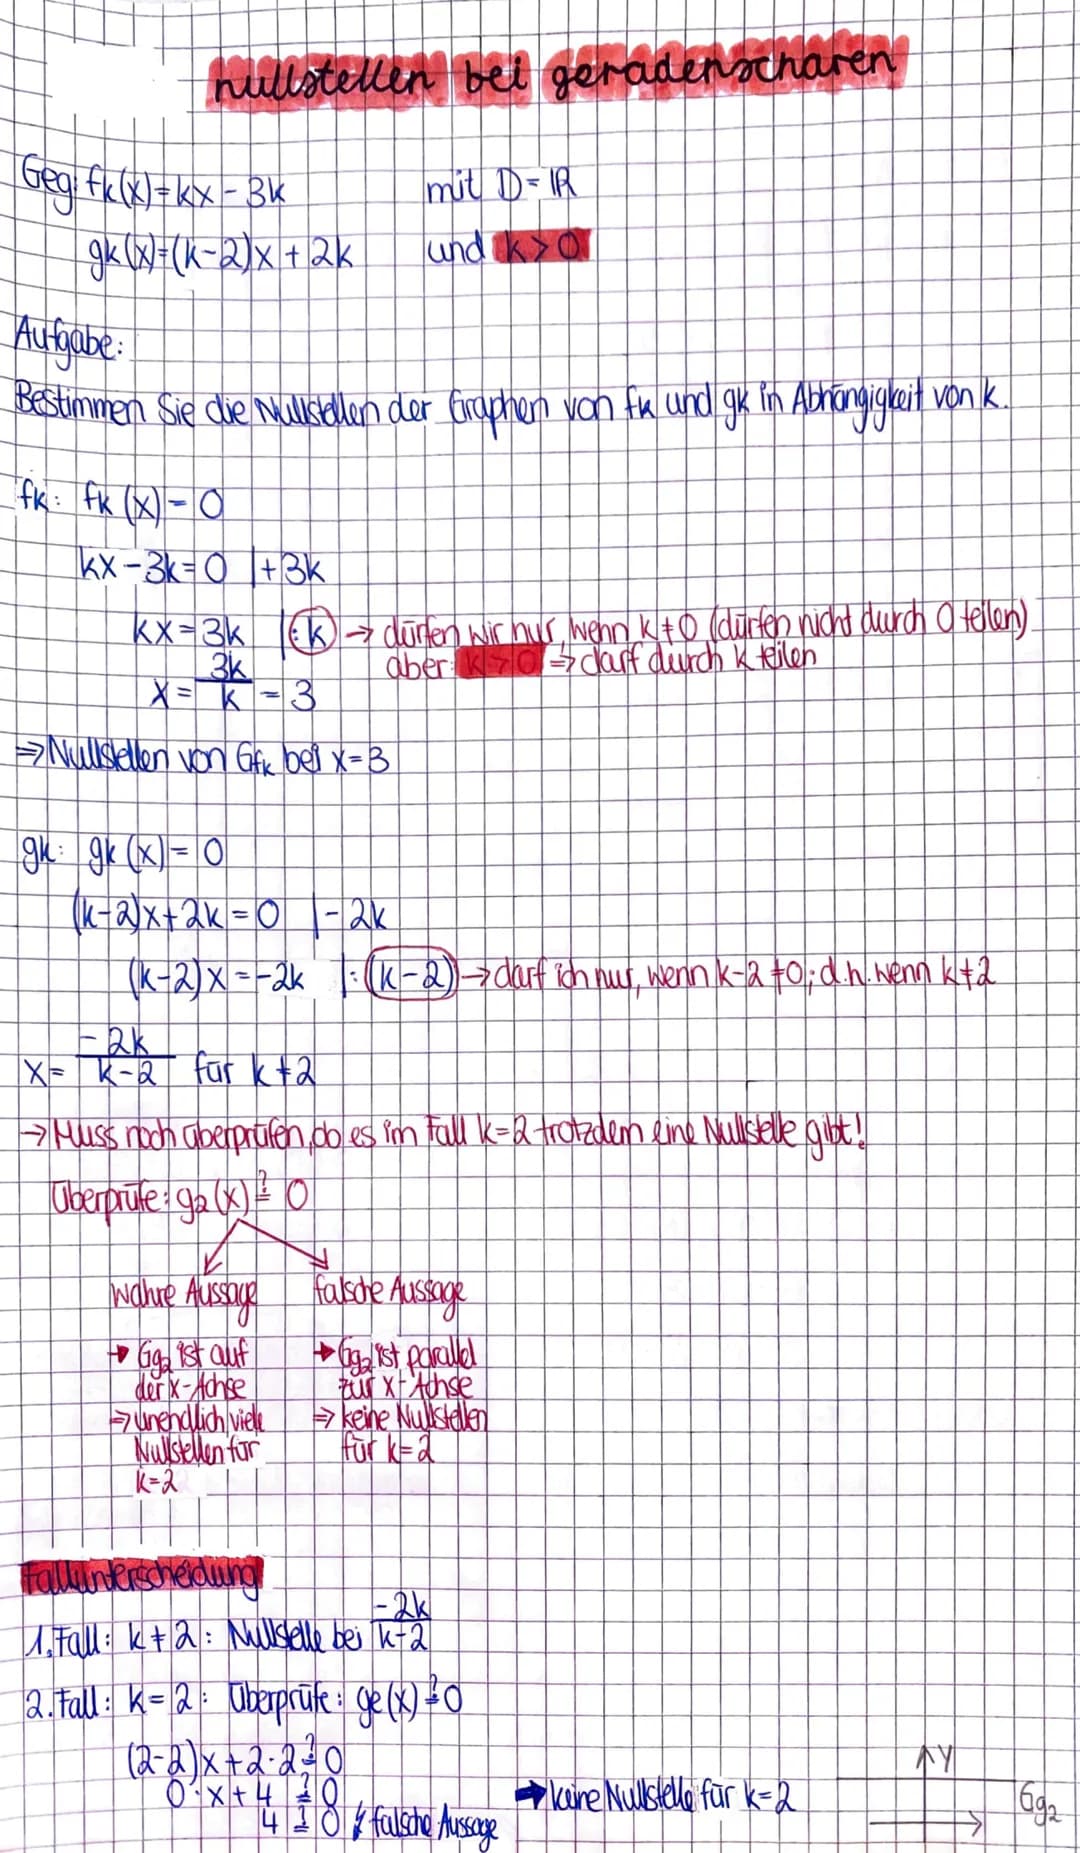 nullstellen bei geradenscharen
Geg: fk(x)=kx-3k mit D=ℝ
gk(x)=(k-2)x+2k und k>0
Aufgabe:
Bestimmen Sie die Nullstellen der Graphen von fk und gk in Abhängigkeit von k.
fk: fk(x)=0
kx-3k=0 |+3k
kx=3k |:k → dürfen wir nur, wenn k≠0 (dürfen nicht durch 0 teilen)
aber: k>0 ⇒ darf durch k teilen
x=3k/k=3
⇒ Nullstellen von Gfk bei x=3
gk: gk(x)=0
(k-2)x+2k=0 |-2k
(k-2)x=-2k |:(k-2) → darf ich nur, wenn k-2≠0; d.h. wenn k≠2
x=-2k/k-2 für k≠2
→ Muss noch überprüfen, ob es im Fall k=2 trotzdem eine Nullstelle gibt!
Überprüfe: g2(x) ≟ 0
wahre Aussage falsche Aussage
→ Gg2 ist auf
der x-Achse
⇒ unendlich viele
Nullstellen für
k=2
→ Gg2 ist parallel
zur x-Achse
⇒ keine Nullstellen
für k=2
Fallunterscheidung
1. Fall: k≠2: Nullstelle bei -2k/k-2
2. Fall: k=2: Überprüfe: ge(x) ≟ 0
(2-2)x+2·2 ≟ 0
0·x+4 ≟ 0
4 ≟ 0 ↯ falsche Aussage
→ keine Nullstelle für k=2
y
Gg2